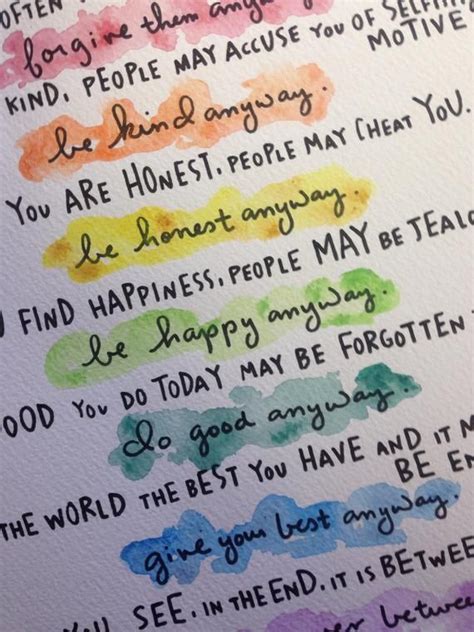 OFTEN
forgive them anyway
KIND, PEOPLE MAY ACCUSE YOU OF SELFISH
MOTIVE
be kind anyway.
YOU ARE HONEST, PEOPLE MAY CHEAT YOU.
be honest anyway.
FIND HAPPINESS, PEOPLE MAY BE JEALO
be happy anyway.
OOD YOU DO TODAY MAY BE FORGOTTEN
do good anyway.
THE WORLD THE BEST YOU HAVE AND IT
BE EN
give your best anyway.
SEE, IN THE END, IT IS BETWEE
between